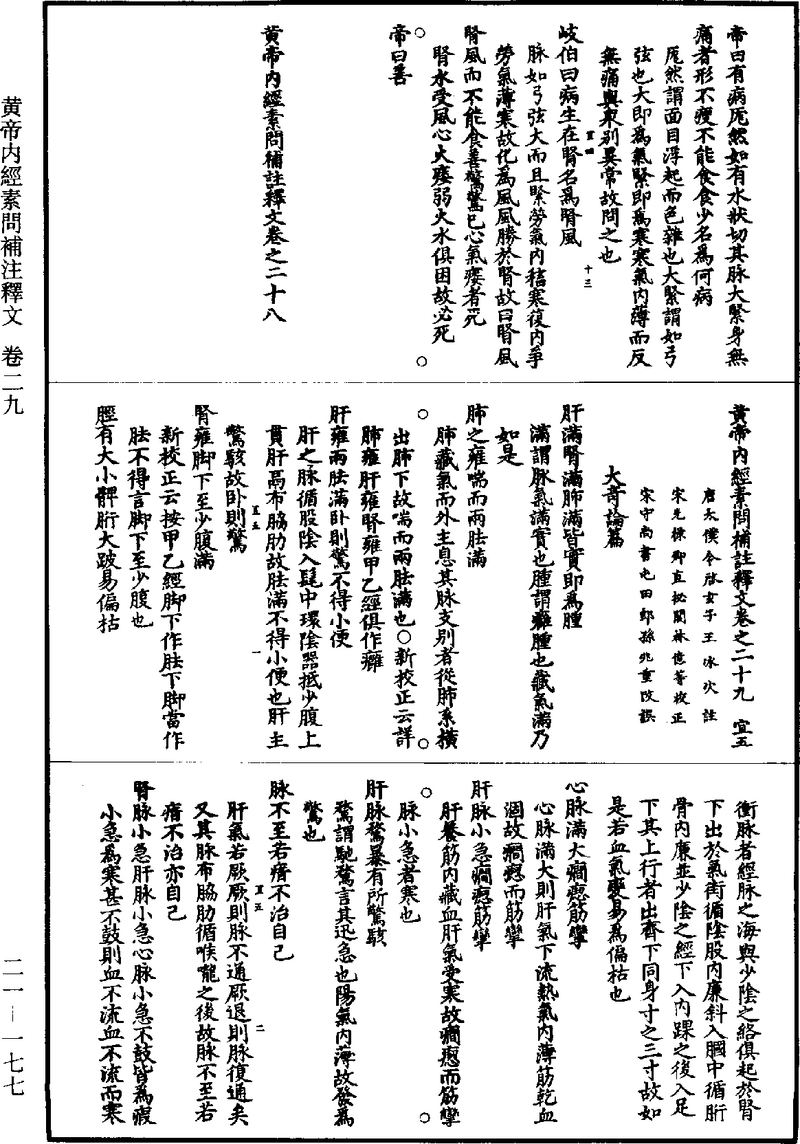 黄帝内經素問補注釋文　卷二九
二一－一七七
帝曰有病厖然如有水狀切其脉大緊身無
痛者形不瘦不能食食少名爲何病
厖然謂面目浮起而色雜也大緊謂如弓
弦也大即爲氣緊即爲寒寒氣内薄而反
無痛與衆别異常故問之也
岐伯曰病生在腎名爲腎風
脉如弓弦大而且緊勞氣内穑寒復内爭
勞氣薄寒故化爲風風勝於腎故曰腎風
腎風而不能食善驚驚已心氣痿者死
腎水受風心火痿弱火水俱困故必死
帝曰善
黄帝内經素問補註釋文卷之二十八
宜四
十三
黄帝内經素問補註釋文卷之二十九　宜五
唐太僕令啓玄子王冰次註
宋光祿卿直秘閣林億等校正
宋守尚書屯田郎孫兆重改誤
大奇論篇
肝滿腎滿肺滿皆實即爲腫
滿謂脉氣滿實也腫謂癰腫也藏氣滿乃
如是
肺之雍喘而兩胠滿
肺藏氣而外主息其脉支别者從肺系橫
出肺下故喘而兩胠滿也○新校正云詳
肺雍肝雍腎雍甲乙經俱作癰
肝雍兩胠滿卧則驚不得小便
肝之脉循股陰入髦中環陰器抵少腹上
貫肝鬲布脇肋故胠滿不得小便也肝主
驚駭故卧則驚
腎雍脚下至少腹滿
新校正云按甲乙經脚下作胠下脚當作
胠不得言脚下至少腹也
脛有大小髀胻大跛易偏枯
宜五
一
衝脉者經脉之海與少陰之絡俱起於腎
下出於氣街循陰股内廉斜入膕中循胻
骨内廉並少陰之經下入内踝之後入足
下其上行者出齊下同身寸之三寸故如
是若血氣變易爲偏枯也
心脉滿大癇瘛筋攣
心脉滿大則肝氣下流熱氣内薄筋乾血
涸故癇瘛而筋攣
肝脉小急癇瘛筋攣
肝養筋内藏血肝氣受寒故癇瘛而筋攣
脉小急者寒也
肝脉騖暴有所驚駭
騖謂馳騖言其迅急也陽氣内薄故發爲
驚也
脉不至若瘖不治自已
肝氣若厥厥則脉不通厥退則脉復通矣
又其脉布脇肋循喉嚨之後故脉不至若
瘖不治亦自已
腎脉小急肝脉小急心脉小急不鼓皆爲瘕
小急爲寒甚不鼓則血不流血不流而寒
宜五
二